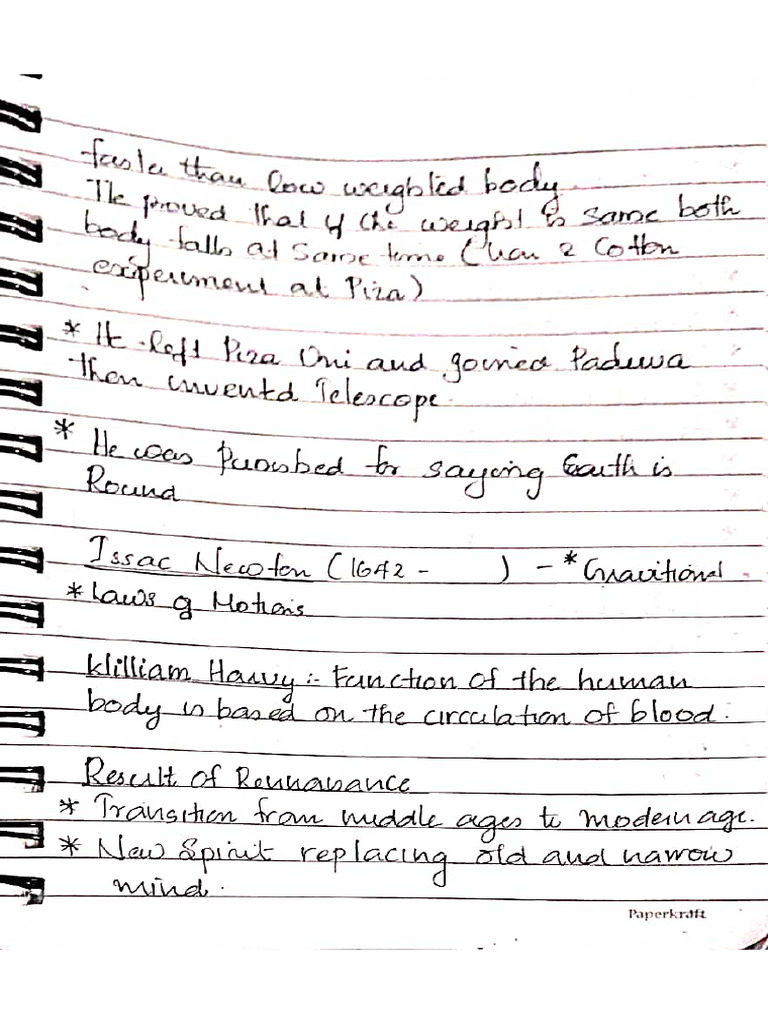 faster than low weighted body.
He proved that if the weight is same both
body falls at same time ( & Cotton
experiment at Piza)
* He left Piza Uni and joined Paduwa
then invented Telescope.
* He was Punished for saying Earth is
Round
Issac Newton (1642 - ) - * Gravitional
* Laws of Motions
William Harvy :- Function of the human
body is based on the circulation of blood.
Result of Rennaisance
* Transition from middle ages to modern age.
* New Spirit replacing old and narrow
mind.
Paperkraft